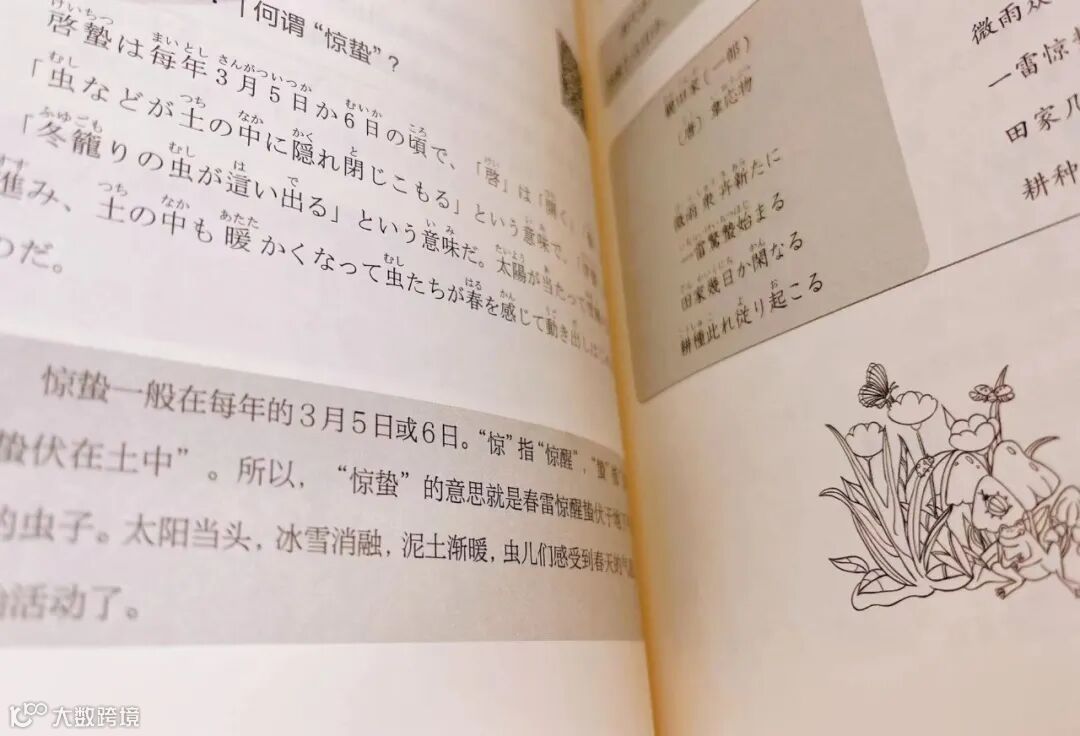 何谓“惊蛰”？
けいちつ まいとし さんがついつか むいか ころ
啓蟄は毎年3月5日か6日の頃で、「啓」は「開く」
むし つち なか かく と
「虫などが土の中に隠れ閉じこもる」という意味で、
ふゆごも むし は で いみ たいよう あ
「冬籠りの虫が這い出る」という意味だ。太陽が当たって
つち なか あたた むし はる かん うご だ
進み、土の中も暖かくなって虫たちが春を感じて動き出し
のだ。
惊蛰一般在每年的3月5日或6日。“惊”指“惊醒”，“蛰”指
蛰伏在土中”。所以，“惊蛰”的意思就是春雷惊醒蛰伏于地下
的虫子。太阳当头，冰雪消融，泥土渐暖，虫儿们感受到春天的气息
始活动了。
観田家（一部）
（唐）韋応物
微雨衆卉新たに
一雷驚蟄始まる
田家幾日か閑なる
耕種此れ従り起こる
微雨众
一雷惊
田家几
耕种
大数跨境